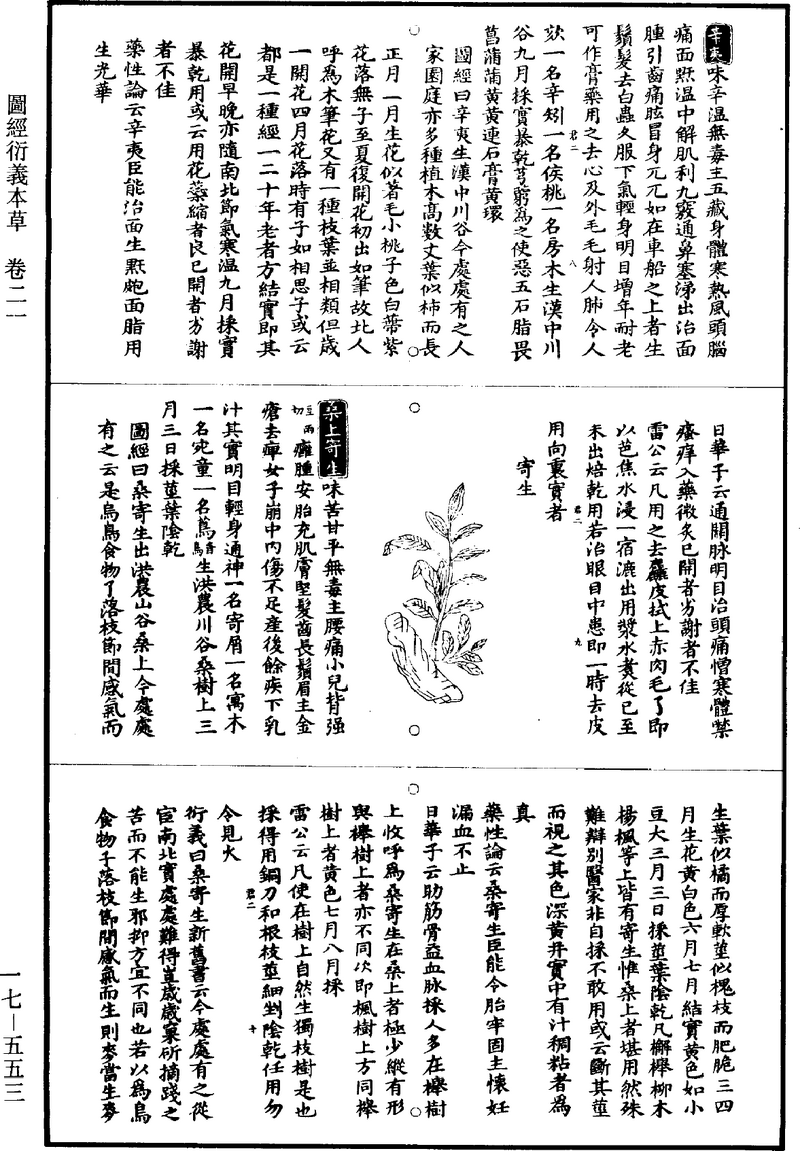 辛夷味辛溫無毒主五藏身體寒熱風頭腦
痛面䵟溫中解肌利九竅通鼻塞涕出治面
腫引齒痛眩冒身兀兀如在車船之上者生
鬚髮去白蟲久服下氣輕身明目增年耐老
可作膏藥用之去心及外毛毛射人肺令人
欬一名辛矧一名侯桃一名房木生漢中川
谷九月採實暴乾芎藭為之使惡五石脂畏
菖蒲蒲黃黃連石膏黃環
圖經曰辛夷生漢中川谷今處處有之人
家園庭亦多種植木高數丈葉似柿而長
正月二月生花似著毛小桃子色白蔕紫
花落無子至夏復開花初出如筆故北人
呼為木筆花又有一種枝葉並相類但歲
一開花四月花落時有子如相思子或云
都是一種經一二十年老者方結實即其
花開早晚亦隨南北節氣寒溫九月採實
暴乾用或云用花蘂縮者良已開者劣謝
者不佳
藥性論云辛夷臣能治面生䵟皰面脂用
生光華
日華子云通關脉明目治頭痛憎寒體噤
瘙痒入藥微炙已開者劣謝者不佳
雷公云凡用之去麤皮拭上赤肉毛了即
以芭焦水浸一宿漉出用漿水煮從巳至
未出焙乾用若治眼目中患即一時去皮
用向裏實者
寄生
桑上寄生味苦甘平無毒主腰痛小兒背强
巨兩切癰腫安胎充肌膚堅髮齒長鬚眉主金
瘡去痺女子崩中內傷不足產後餘疾下乳
汁其實明目輕身通神一名寄屑一名寓木
一名宛童一名蔦音鳥生洪農川谷桑樹上三
月三日採莖葉陰乾
圖經曰桑寄生出洪農山谷桑上今處處
有之云是烏鳥食物子落枝節間感氣而
生葉似橘而厚軟莖似槐枝而肥脆三四
月生花黃白色六月七月結實黃色如小
豆大三月三日採莖葉陰乾凡槲櫸柳木
楊楓等上皆有寄生惟桑上者堪用然殊
難辯別醫家非自採不敢用或云斷其莖
而視之其色深黃并實中有汁稠粘者為
真
藥性論云桑寄生臣能令胎牢固主懷妊
漏血不止
日華子云助筋骨益血脉採人多在櫸樹
上收呼為桑寄生在桑上者極少縱有形
與櫸樹上者亦不同次即楓樹上方同櫸
樹上者黃色七月八月採
雷公云凡使在樹上自然生獨枝樹是也
採得用銅刀和根枝莖細剉陰乾任用勿
令見火
衍義曰桑寄生新舊書云今處處有之從
宦南北實處處難得豈歲歲窠斫摘踐之
苦而不能生邪抑方宜不同也若以為烏
食物子落枝節間感氣而生則麥當生麥
圖經衍義本草 卷二一
一七—五五三